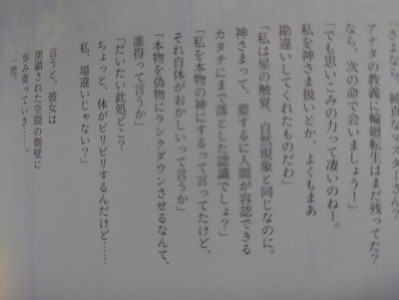 「さよなら、純真なマスターさん?
アナタの教義に輪廻転生はまだ残ってた?
なら、次の命で会いましょう!」
「でも思いこみの力って凄いのねー。
私を神さま扱いとか、よくもまあ
勘違いしてくれたものだわ」
「私は星の触覚、自然現象と同じなのに。
神さまって、要するに人間が容認できる
カタチにまで落とした認識でしょ?」
「私を本物の神にするって言ってたけど、
それ自体がおかしいって言うか」
「本物を偽物にランクダウンさせるなんて、
誰得って言うか」
「だいたい此処どこ?
ちょっと、体がピリピリするんだけど……
私、場違いじゃない?」
言うと、彼女は
閉鎖された空間の側壁に
歩み寄っていき……。
一閃。